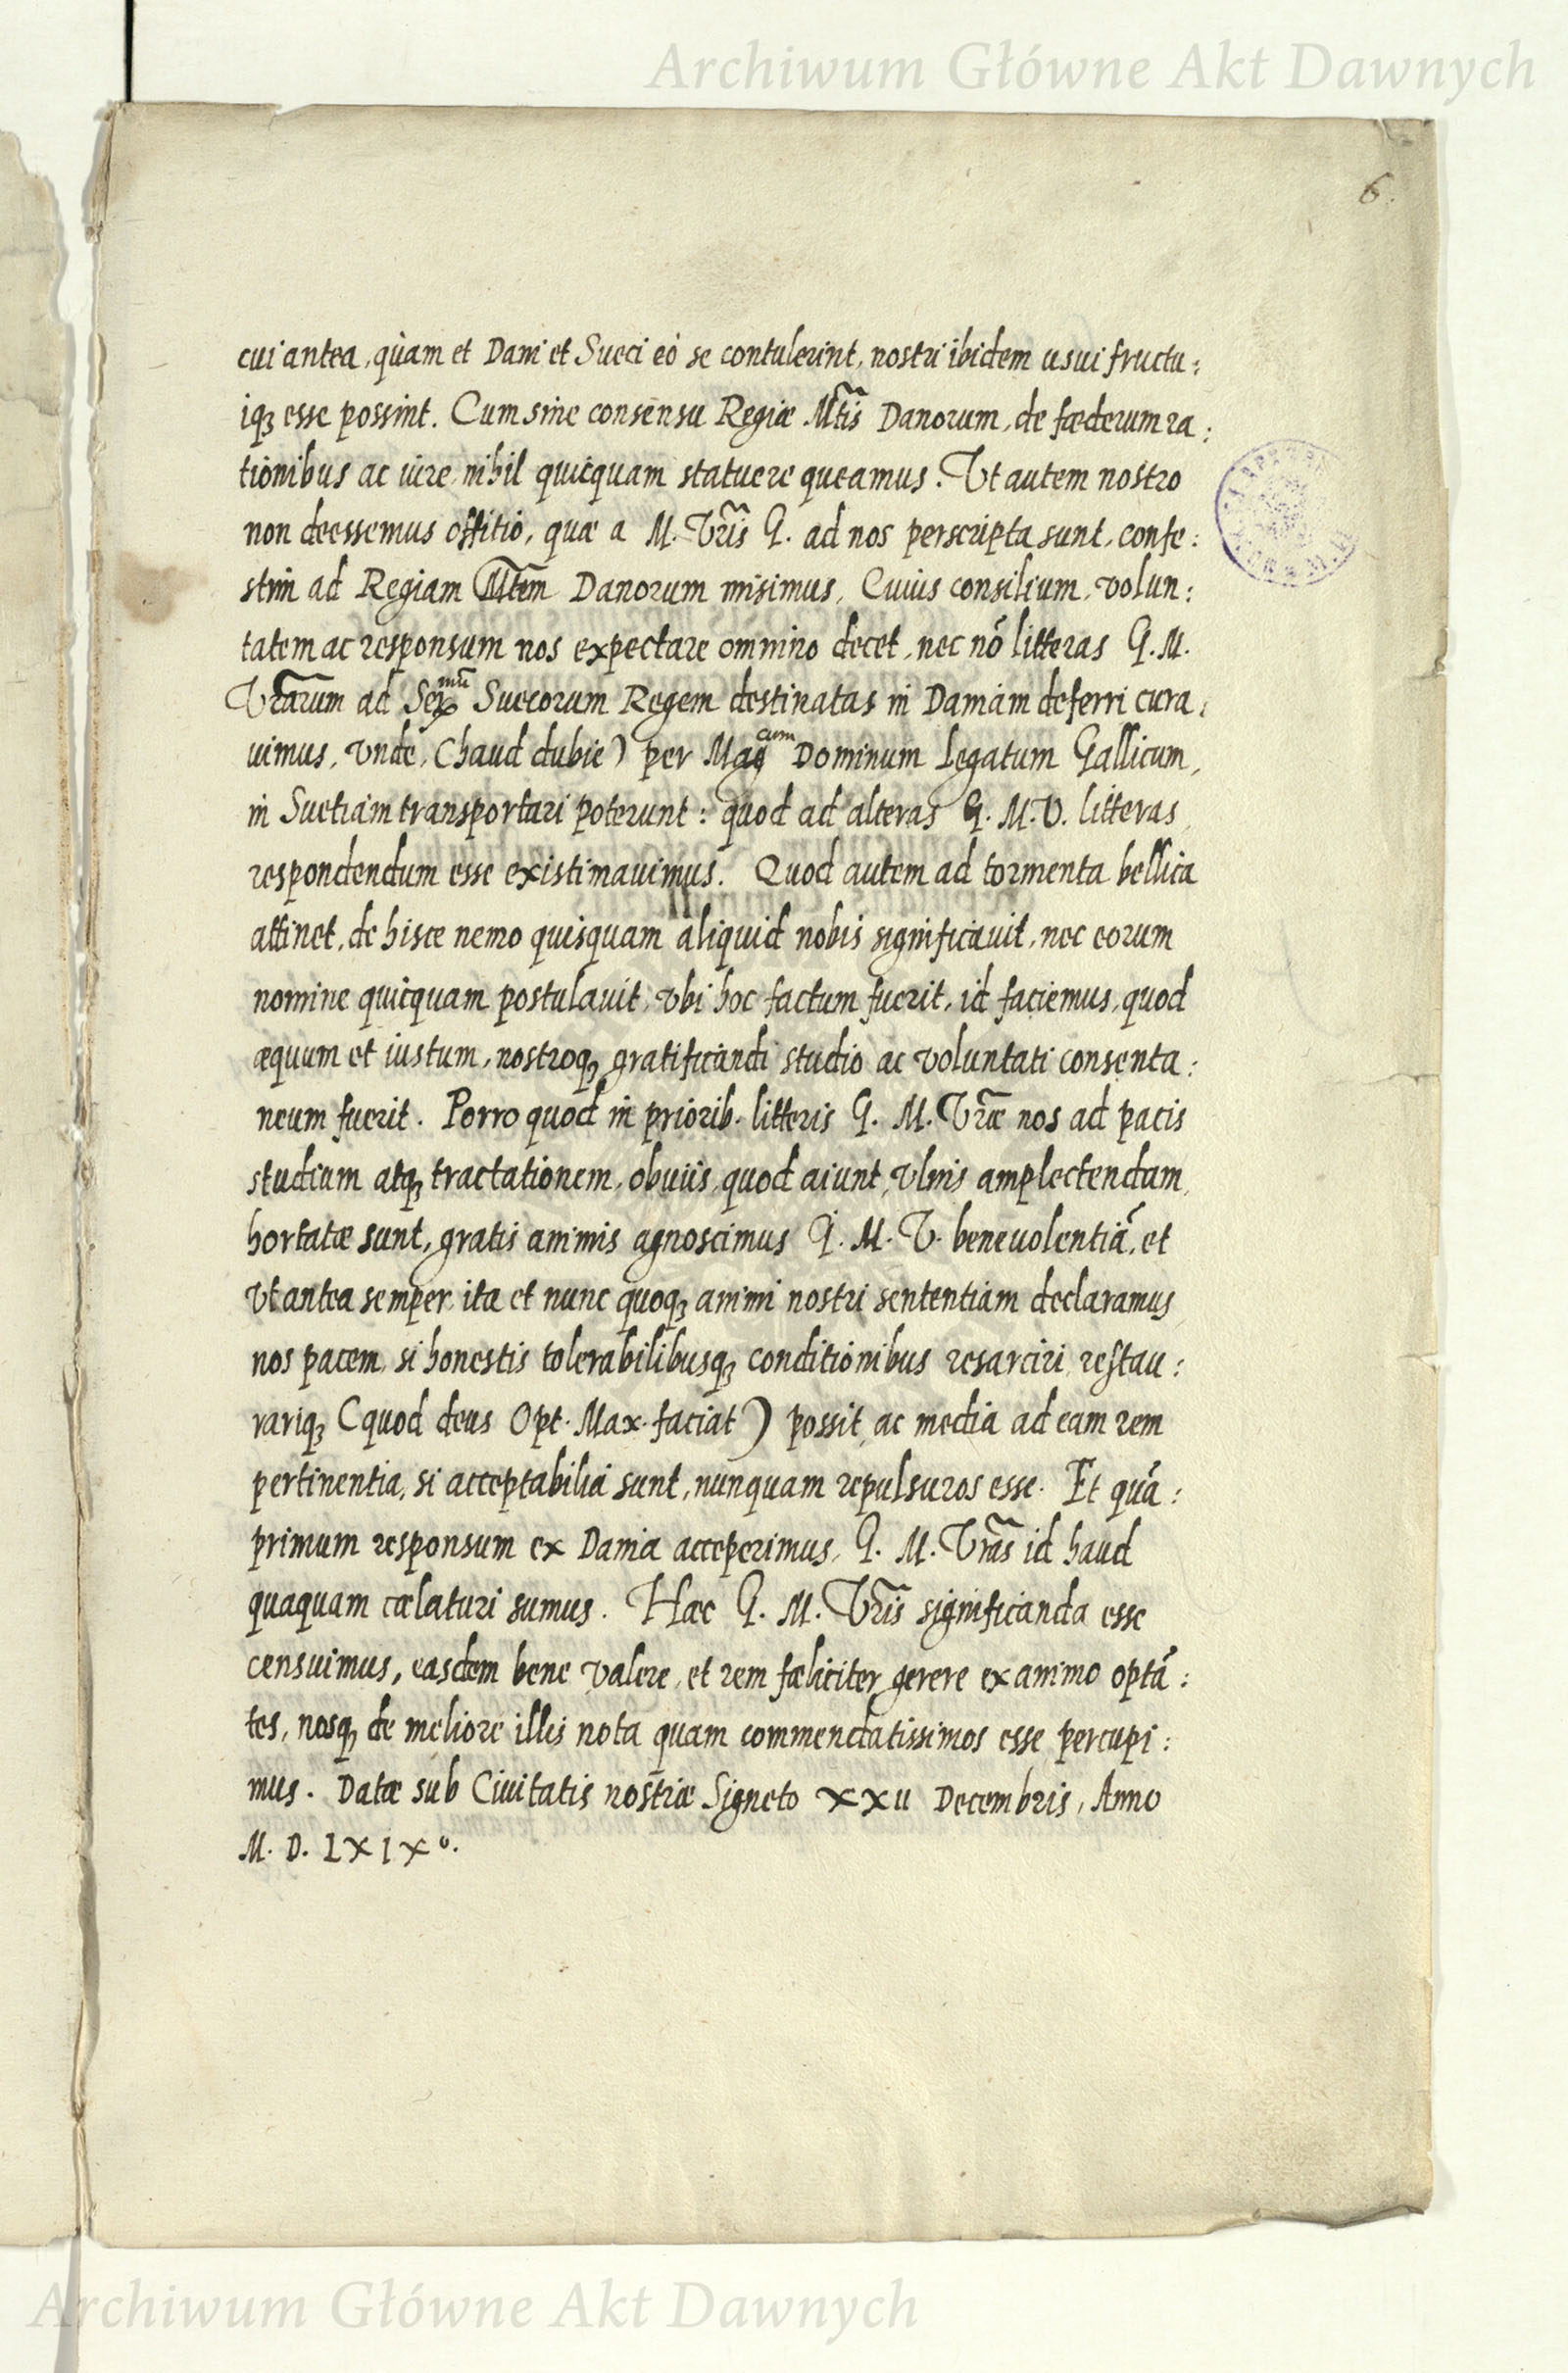 Archiwum Główne Akt Dawnych
6.
cui antea, quàm et Dani et Sueci eò se contulerint, nostri ibidem usui fructu:
iqꜫ esse possint. Cum sine consensu Regiæ Mtis Danorum, de fæderum ra:
tionibus ac iure nihil quicquam statuere queamus. Vt autem nostro
non deessemus offitio, quæ a M. Vris G. ad nos perscripta sunt, confe:
stim ad Regiam Mtem Danorum misimus, Cuius consilium, volun:
tatem ac responsum nos expectare omnino decet, nec nō litteras G. M.
Vrarum ad Ser mū Suecorum Regem destinatas in Daniam deferri cura:
uimus, vnde, (haud dubie) per Mag cum Dominum Legatum Gallicum,
in Suetiam transportari poterunt: quod ad alteras G. M. V. litteras
respondendum esse existimauimus. Quod autem ad tormenta bellica
attinet, de hisce nemo quisquam aliquid nobis significauit, nec eorum
nomine quicquam postulauit, vbi hoc factum fuerit, id faciemus, quod
æquum et iustum, nostroqꜫ gratificandi studio ac voluntati consenta:
neum fuerit. Porro quod in priorib. litteris G. M. Vræ nos ad pacis
studium atqꜫ tractationem, obuiis, quod aiunt, vlnis amplectendam,
hortatæ sunt, gratis animis agnoscimus G. M. V. beneuolentiā, et
vt antea semper, ita et nunc quoqꜫ animi nostri sententiam declaramus
nos pacem, si honestis tolerabilibusqꜫ conditionibus resarciri, restau:
rariqꜫ (quod deus Opt. Max. faciat) possit, ac media ad eam rem
pertinentia, si acceptabilia sunt, nunquam repulsuros esse. Et quā:
primum responsum ex Dania acceperimus, G. M. Vras id haud
quaquam cælaturi sumus. Hæc G. M. Vris significanda esse
censuimus, easdem bene valere, et rem fæliciter gerere ex animo optā:
tes, nosqꜫ de meliore illis nota quam commendatissimos esse percupi:
mus. Datæ sub Ciuitatis nostræ Signeto XXII Decembris, Anno
M. D. LXIX⁰.
Archiwum Główne Akt Dawnych